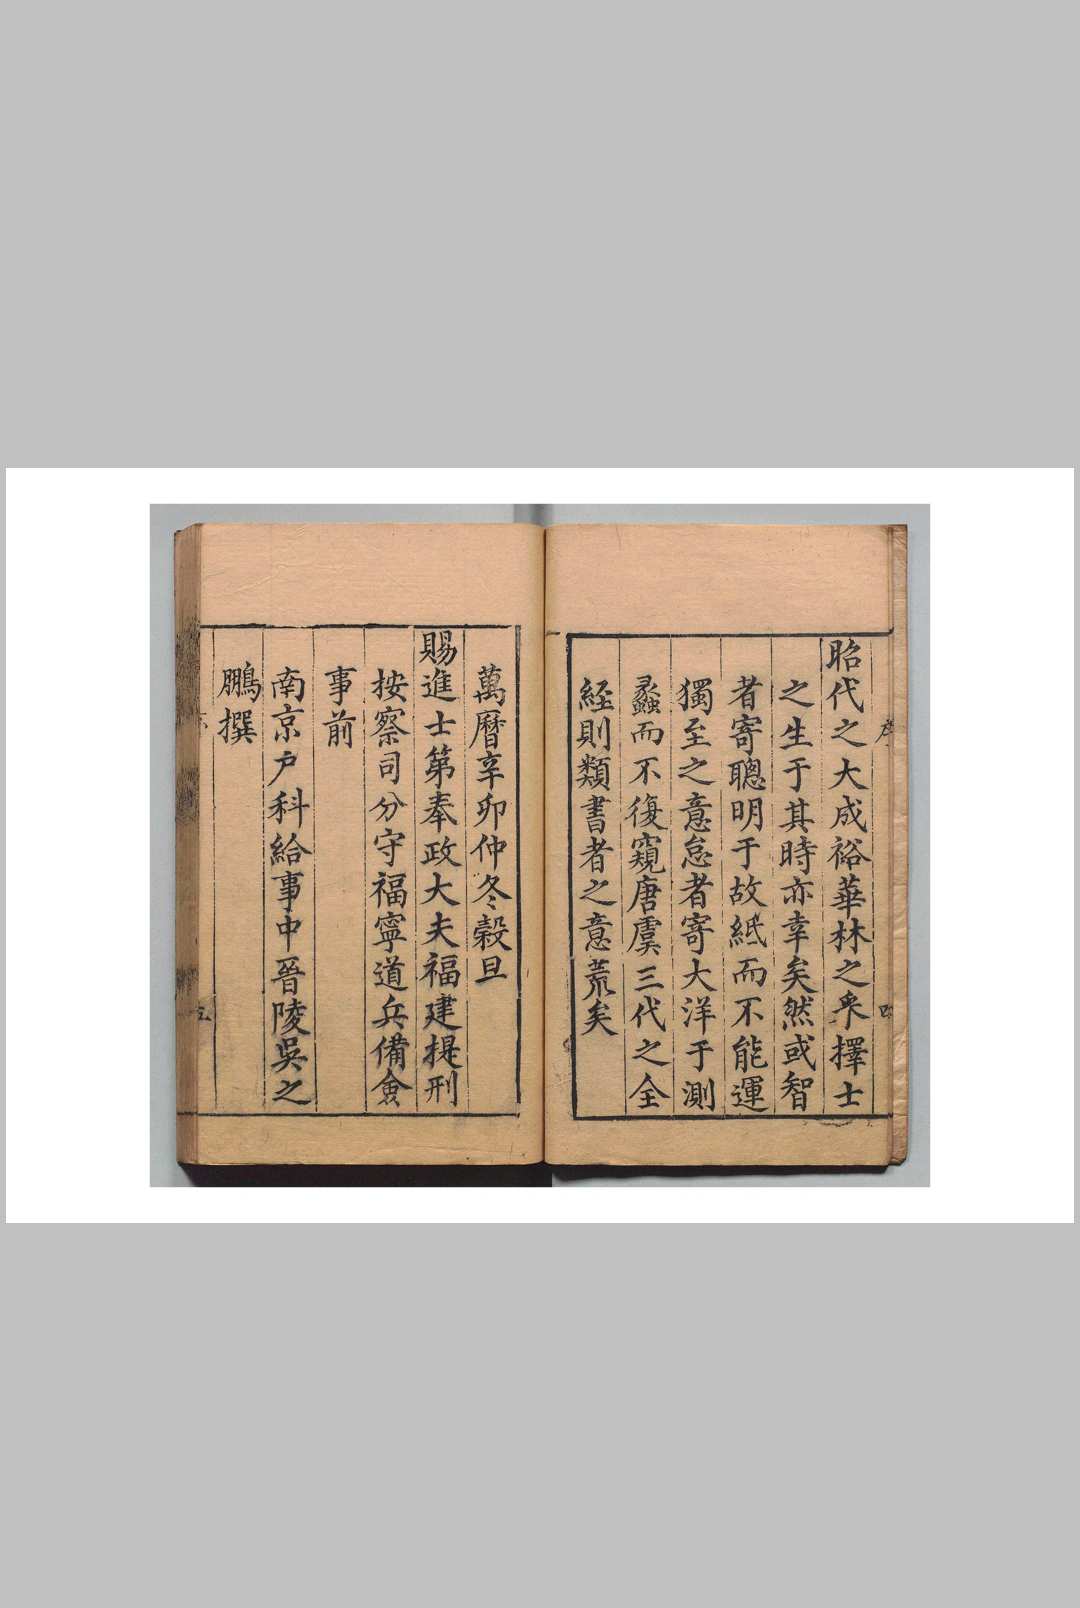 昭代之大成裕華林之乘擇士
之生于其時亦幸矣然或智
者寄聰明于故紙而不能運
獨至之意怠者寄大洋于測
蠡而不復窺唐虞三代之全
經則類書者之意荒矣
萬曆辛卯仲冬穀旦
賜進士第奉政大夫福建提刑
按察司分守福寧道兵備僉
事前
南京户科給事中晉陵吳之
鵬撰